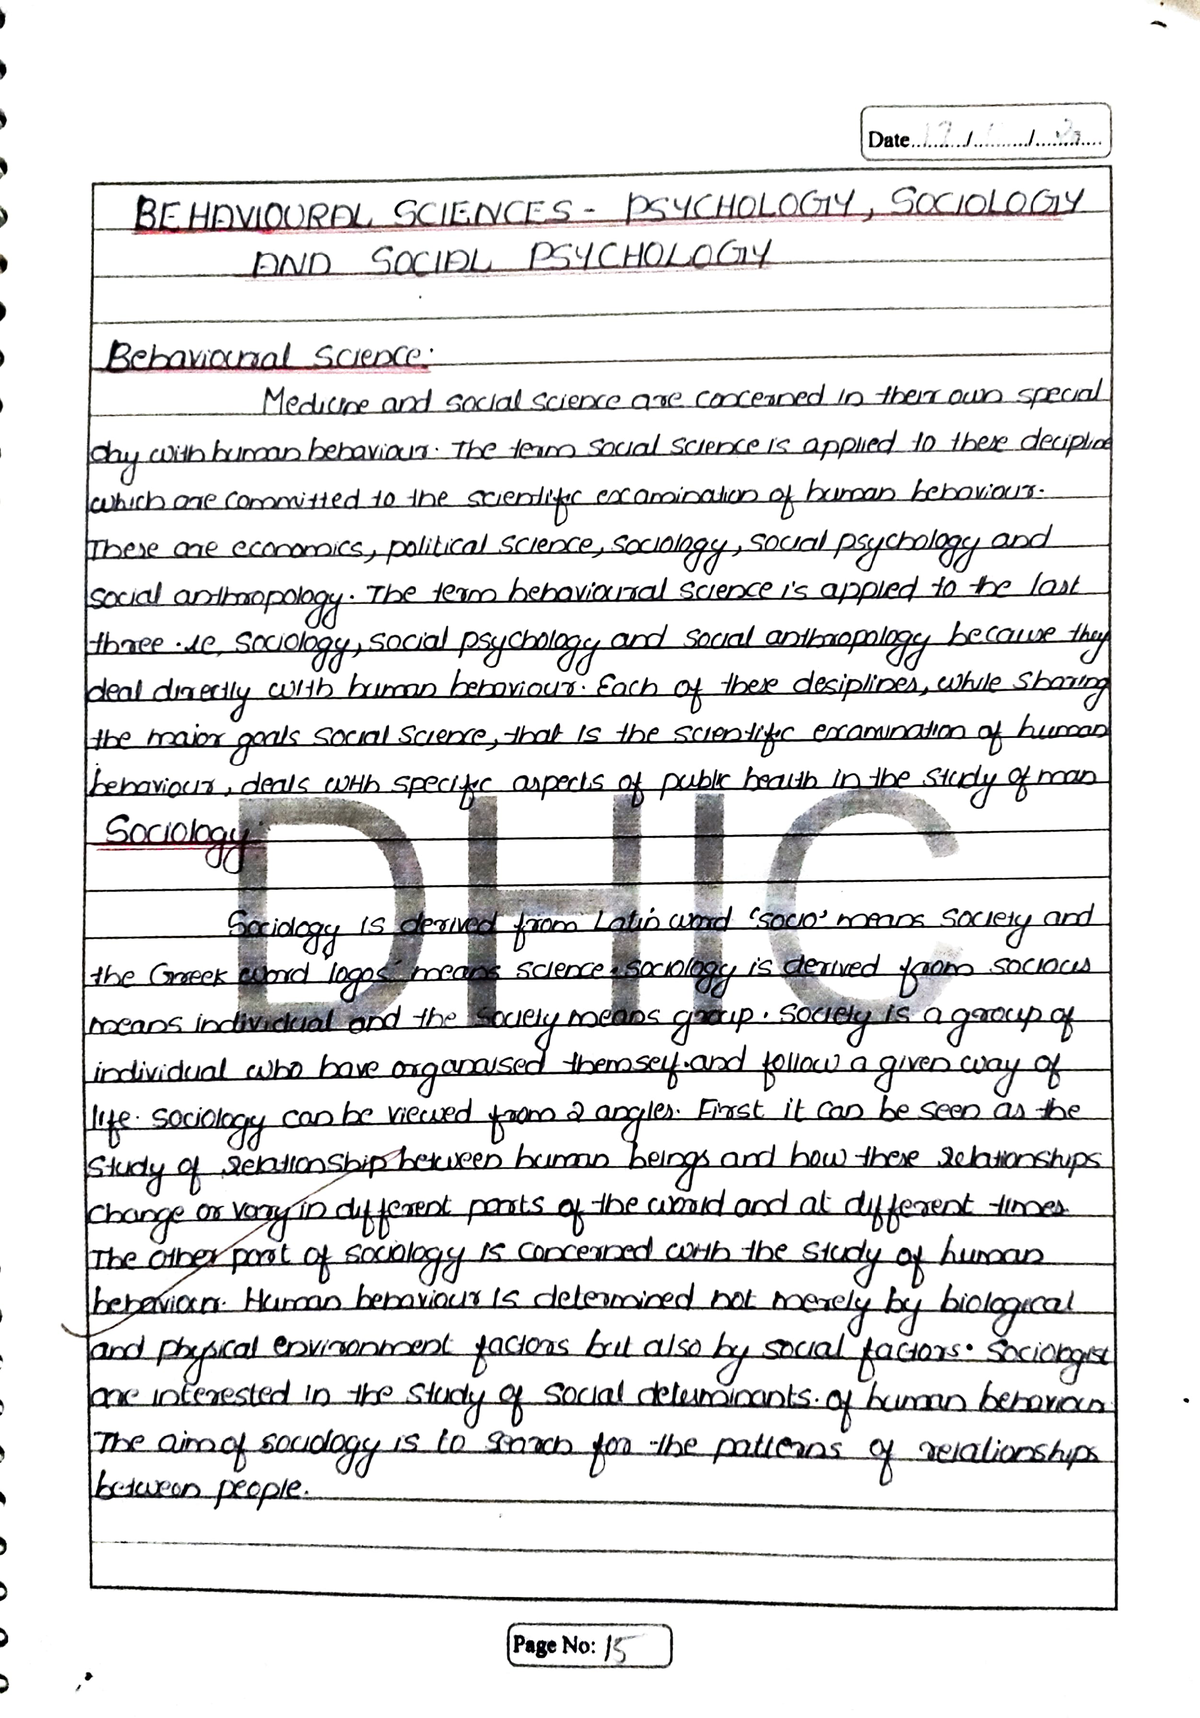 Date 17 / / 20
BEHAVIOURAL SCIENCES - PSYCHOLOGY, SOCIOLOGY
AND SOCIAL PSYCHOLOGY
Behavioural Science:
Medicine and social science are concerned in their own special
day with human behaviour. The term social science is applied to these decipline
which are committed to the scientific examination of human behaviour.
These are economics, political science, sociology, social psychology and
social anthropology. The term behavioural science is applied to the last
three .ie, sociology, social psychology and social anthropology because they
deal directly with human behaviour. Each of these desiplines, while sharing
the major goals social science, that is the scientific examination of human
behaviour, deals with specific aspects of public health in the study of man
Sociology:
DHIC
Sociology is derived from Latin word 'socio' means society and
the Greek word 'logos' means science. sociology is derived from socious
means individual and the society means group. Society is a group of
individual who have organaised themself and follow a given way of
life. sociology can be viewed from 2 angles. First it can be seen as the
study of relationship between human beings and how these relationships
change or vary in different parts of the world and at different times.
The other part of sociology is concerned with the study of human
behaviour. Human behaviour is determined not merely by biological
and physical environment factors but also by social factors. Sociologist
are interested in the study of social determinants of human behaviour
The aim of sociology is to search for the patterns of relationships
between people.
Page No: 15